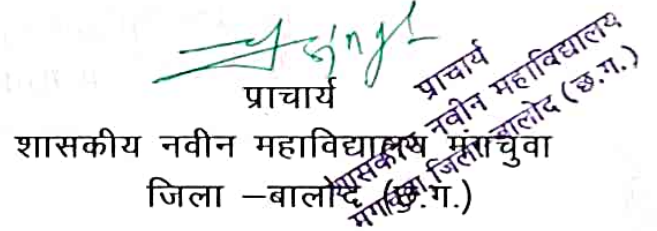 प्राचार्य
शासकीय नवीन महाविद्यालय मंगचुवा
जिला –बालोद (छ.ग.)
प्राचार्य
शासकीय नवीन महाविद्यालय
मंगचुवा जिला बालोद (छ.ग.)